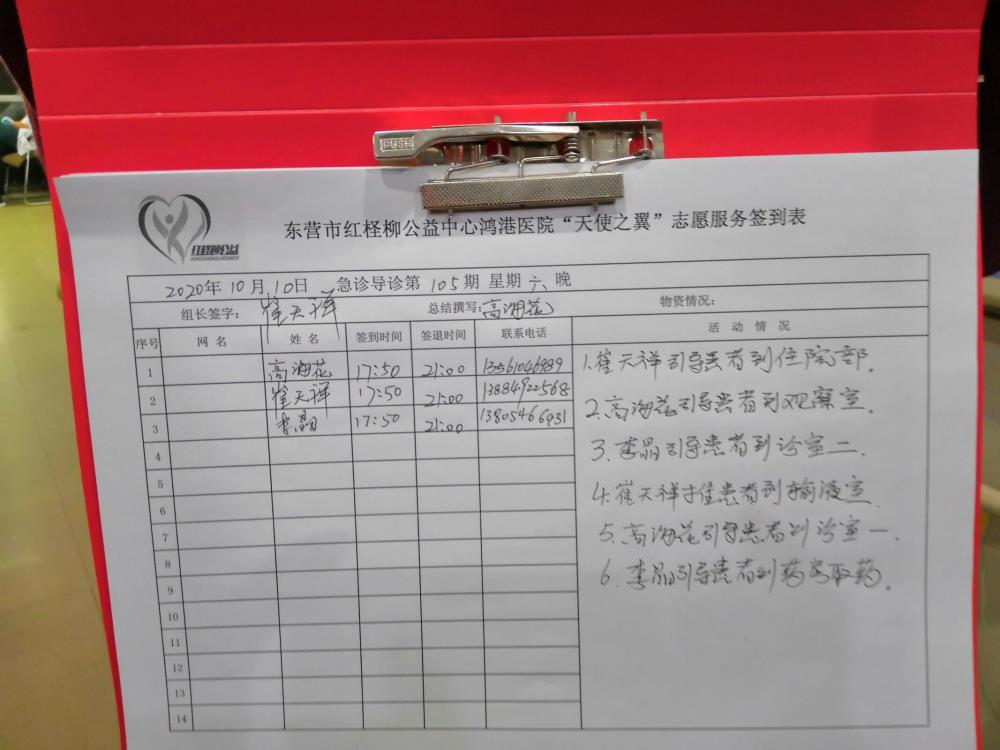 PUSH
红柽柳公益
东营市红柽柳公益中心鸿港医院“天使之翼”志愿服务签到表
2020年10月10日 急诊导诊第105期 星期六 晚
组长签字：崔天祥 总结撰写：高海花 物资情况：
序号 网 名 姓 名 签到时间 签退时间 联系电话 活 动 情 况
1 高海花 17:50 21:00 13561046989
2 崔天祥 17:50 21:00 13884922568
3 李晶 17:50 21:00 13805466931
4
5
6
7
8
9
10
11
12
13
14
1.崔天祥引导患者到住院部.
2.高海花引导患者到观察室.
3.李晶引导患者到诊室二.
4.崔天祥推患者到输液室
5.高海花引导患者到诊室一.
6.李晶引导患者到药房取药.